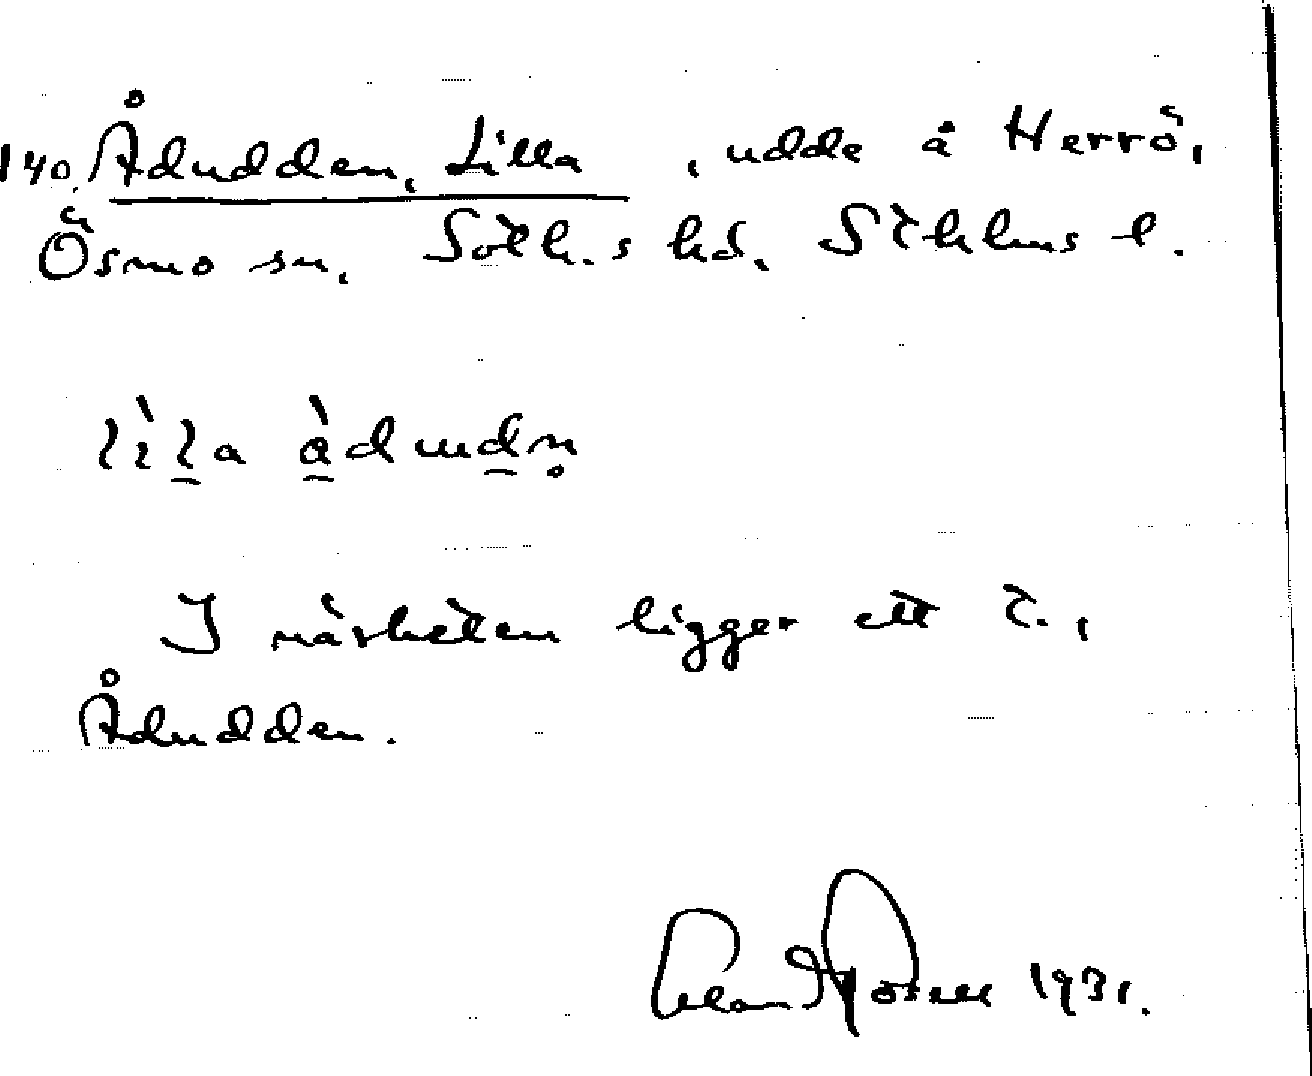 140. Ådudden, Lilla, udde å Herrö,
Ösmo sn. Soth.s hd. Sthlms l.
lìla àdudn̥
I närheten ligger ett t.,
Ådudden.
1931.